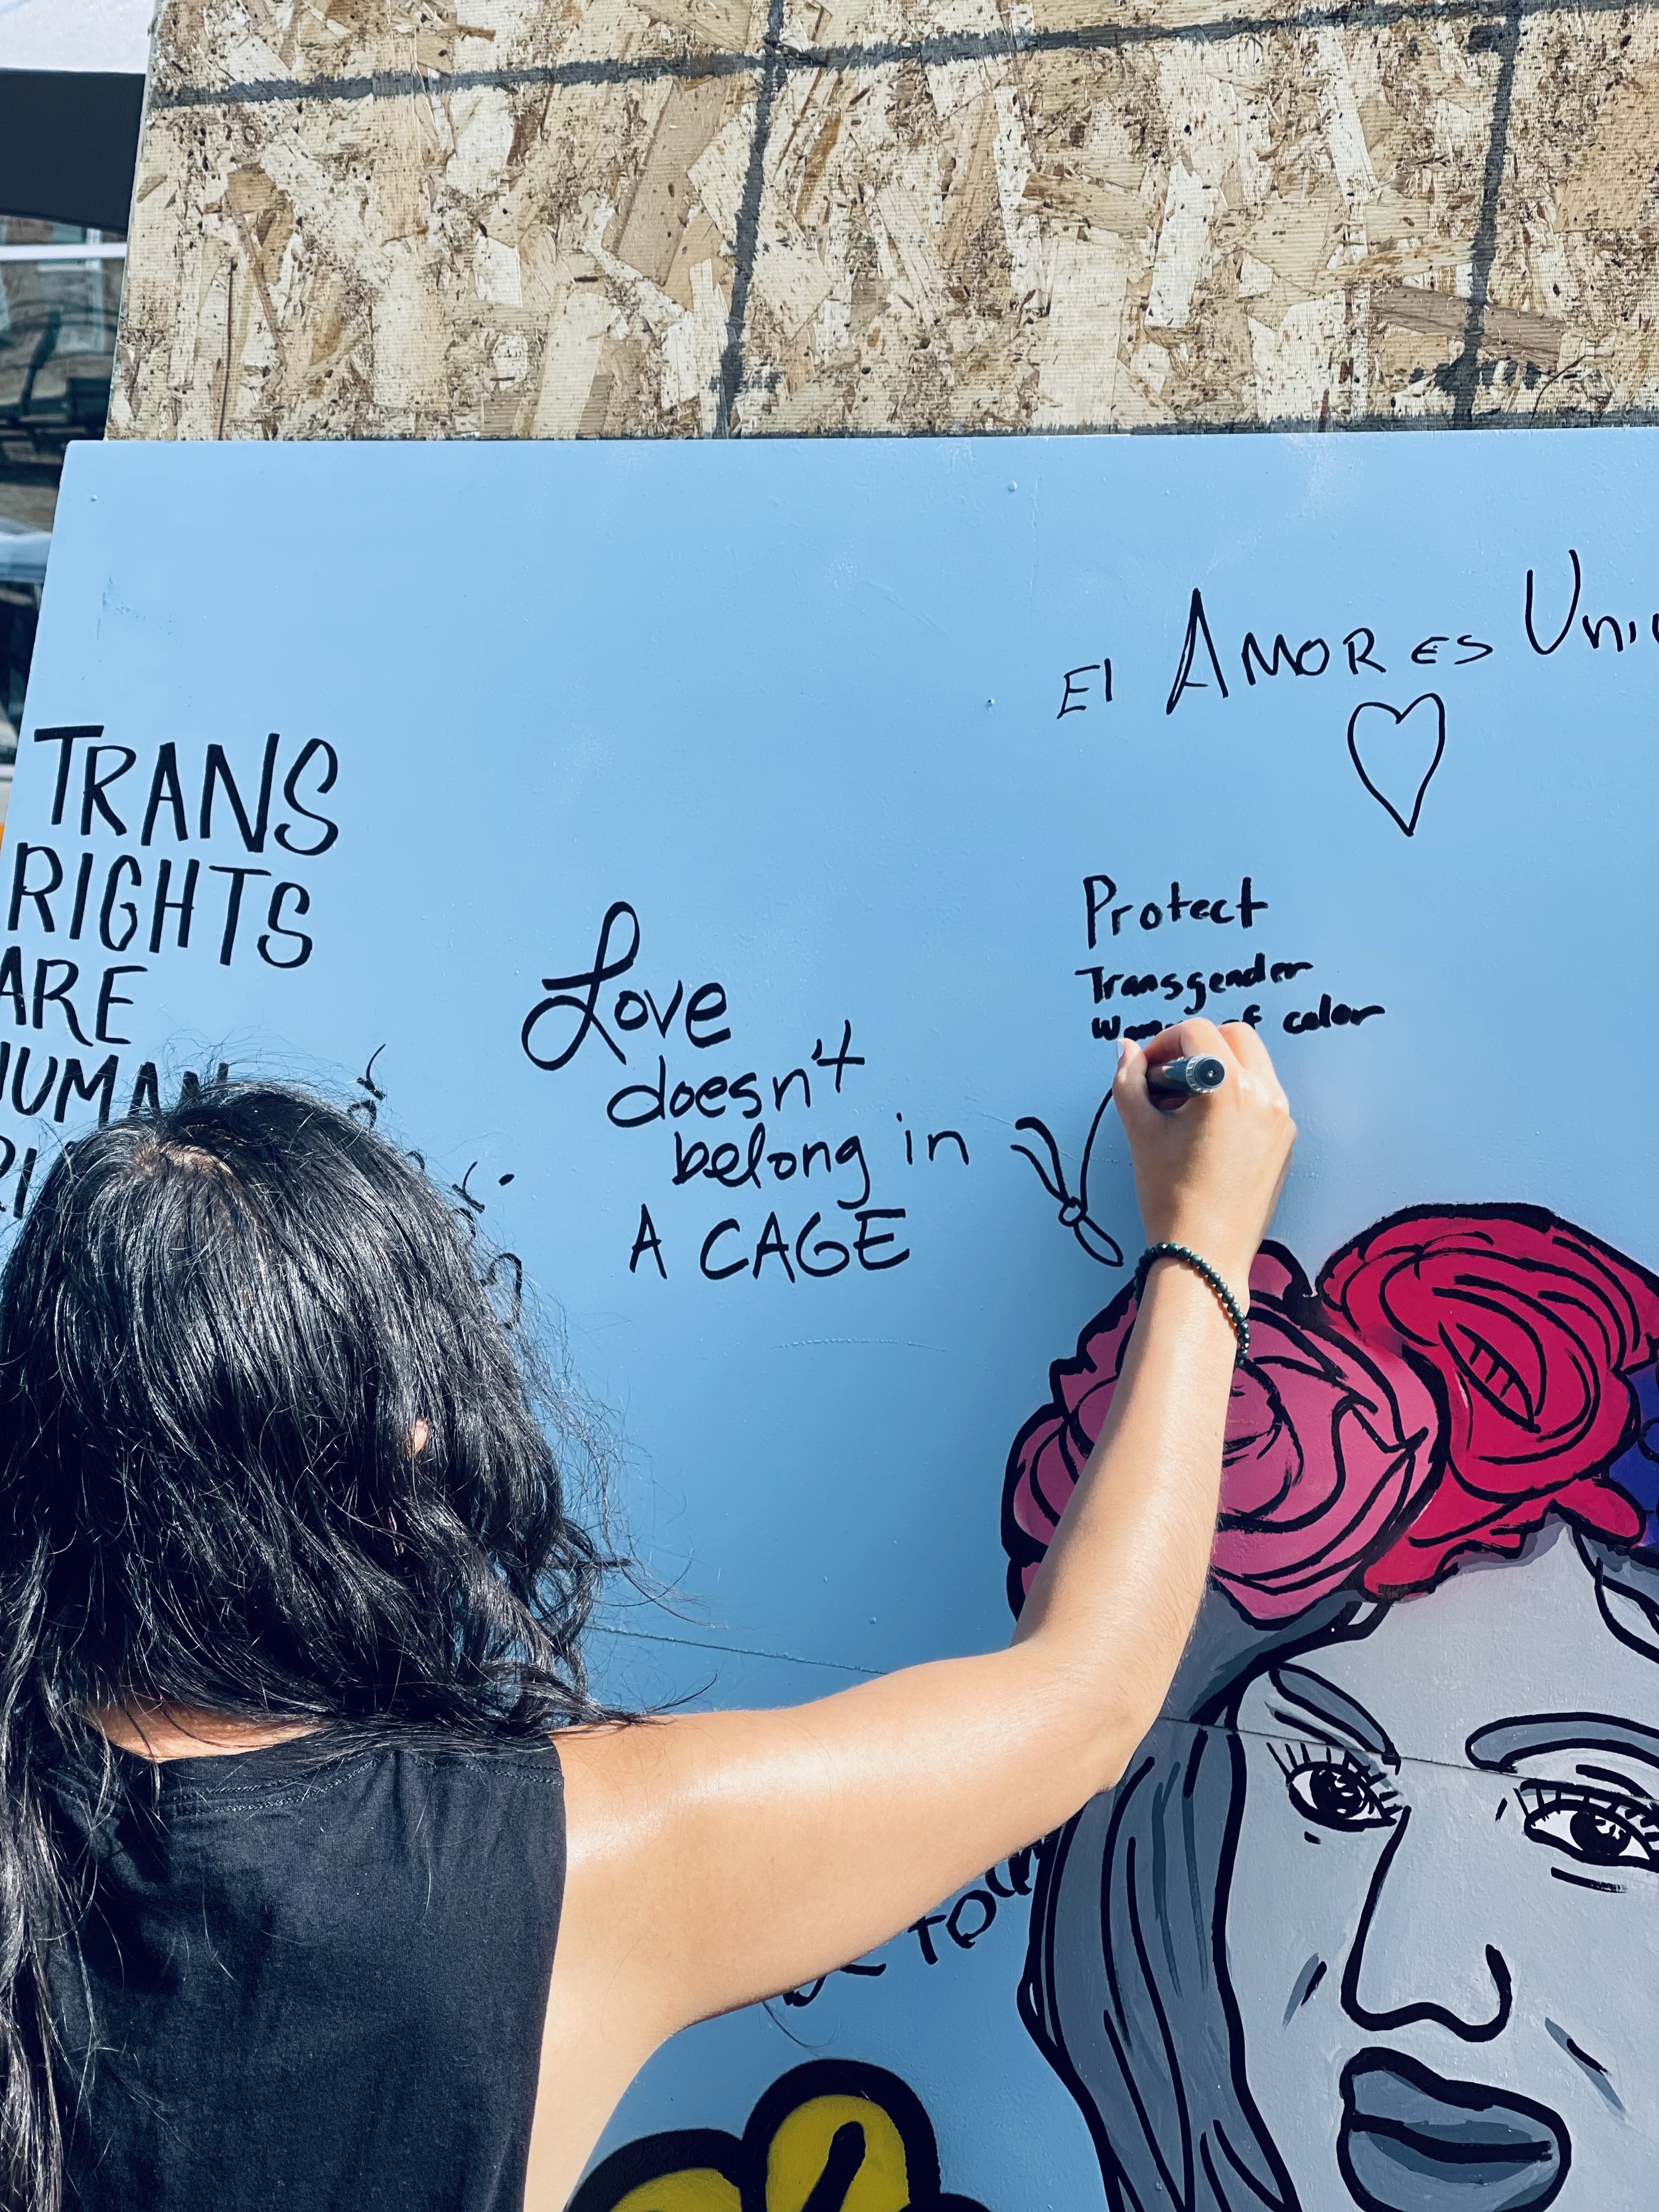 El AMOR ES
TRANS
RIGHTS
ARE
HUMAN
Love
doesn't
belong in
A CAGE
Protect
Transgender
of color